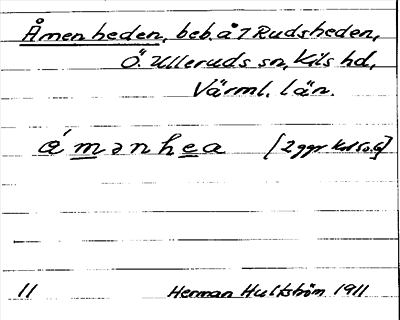 Åmenheden, beb. å 7 Rudsheden,
Ö. Ulleruds sn, Kils hd,
Värml. län.
á mənhea [2 ggr
11 Herman Hultström 1911